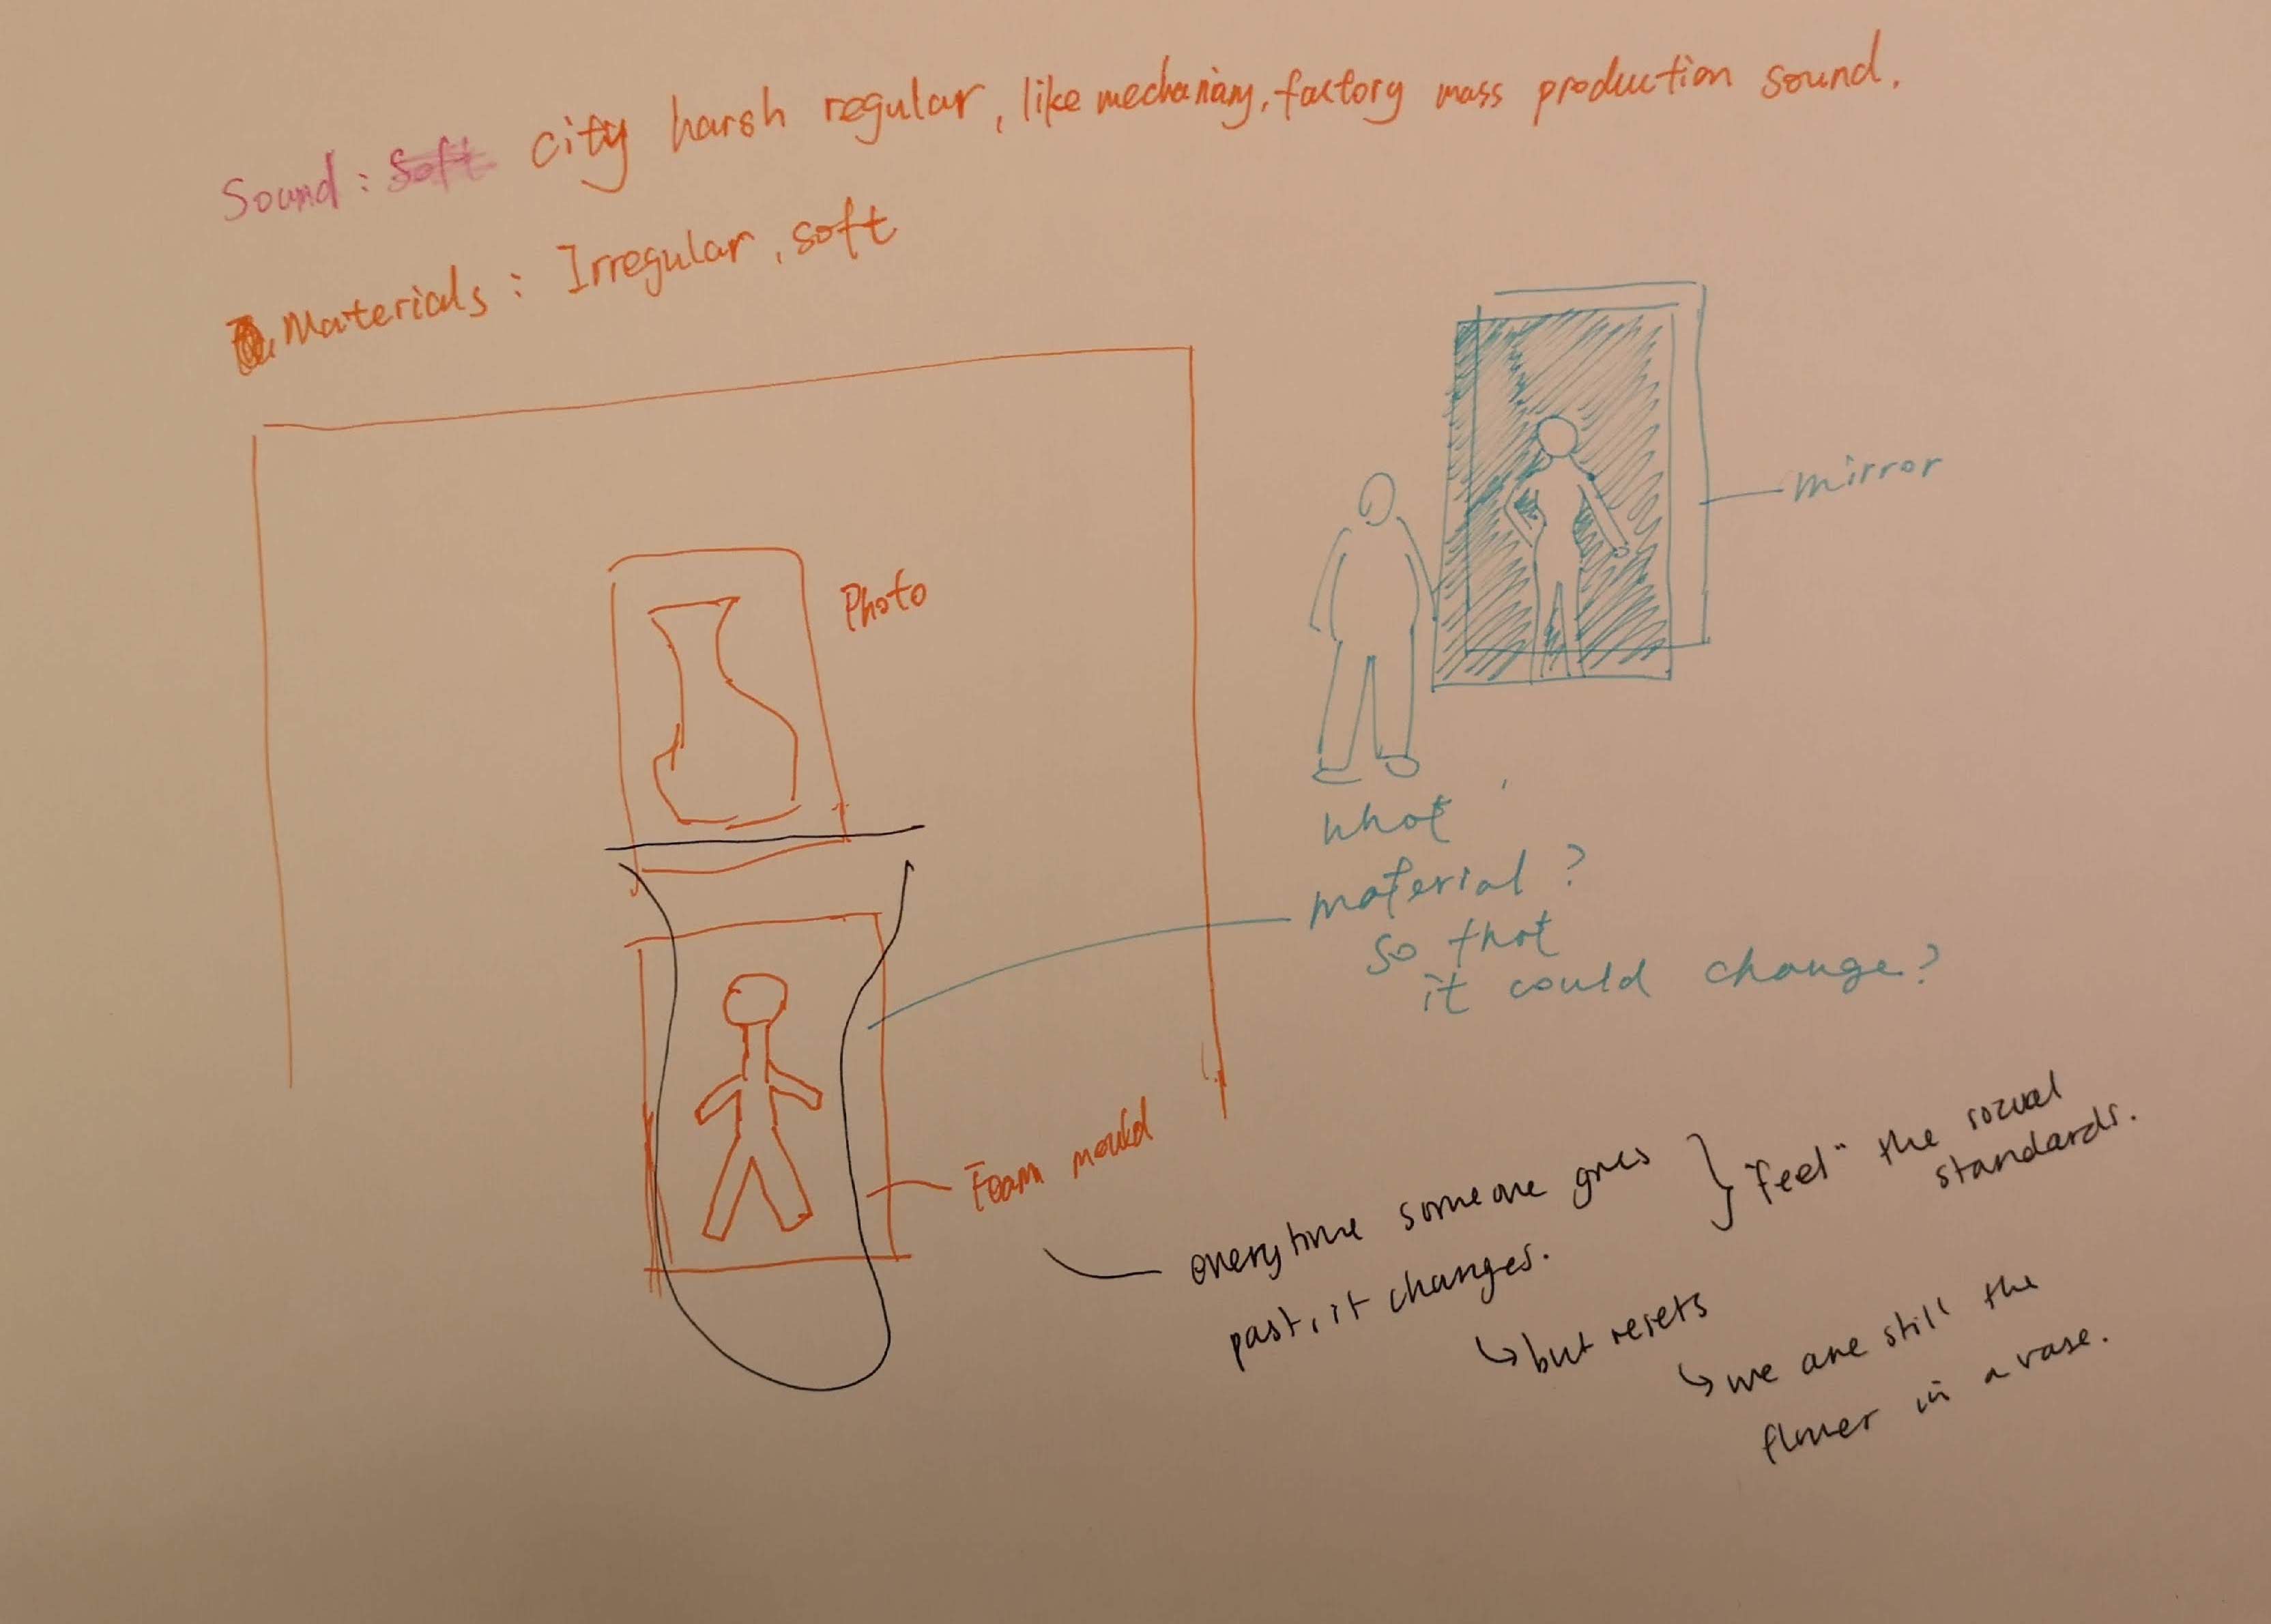 Sound: soft city harsh regular, like mechaniany, factory mass production sound.
Materials: Irregular, soft
Photo
mirror
what
material?
so that
it could change?
Foam mould
everytime someone goes
past, it changes.
"feel" the social
standards.
but resets
we are still the
flower in a vase.